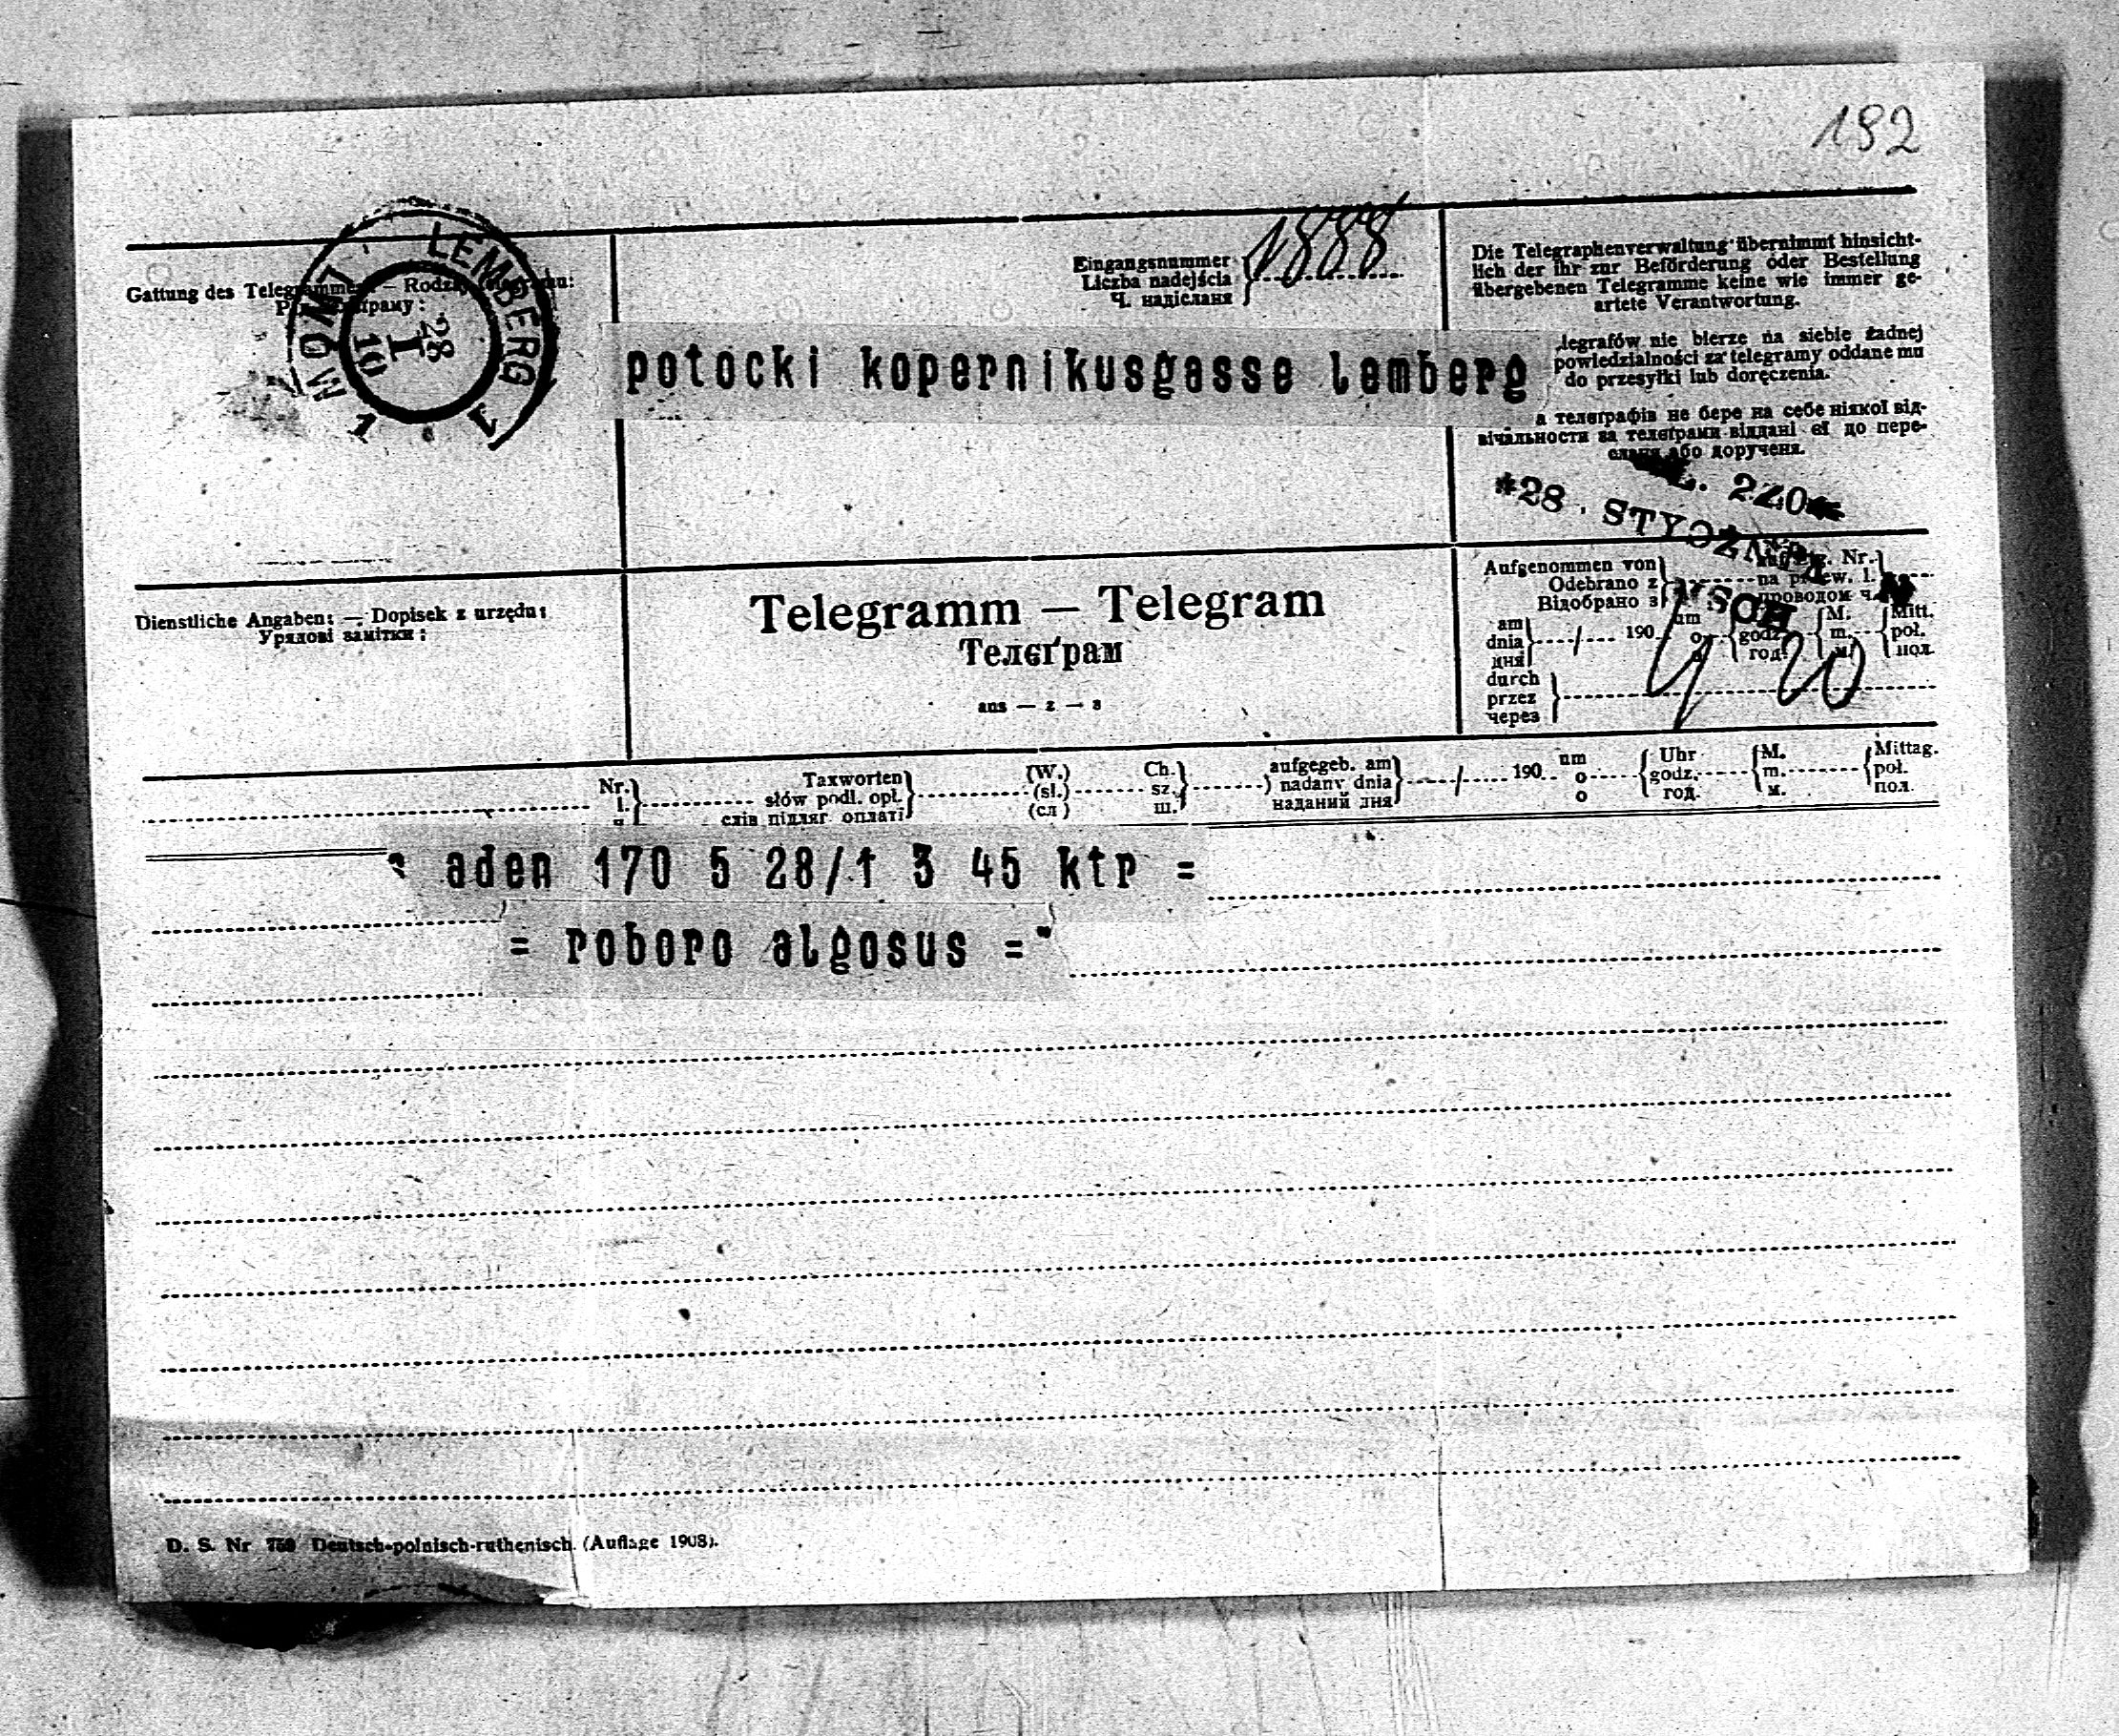 192
Gattung des Telegramme — Rodzaj
LEMBERG
LWÓW 1
28
I
10
Eingangsnummer
Liczba nadejścia
Ч. надісланя
1888
Die Telegraphenverwaltung übernimmt hinsicht-
lich der ihr zur Beförderung oder Bestellung
übergebenen Telegramme keine wie immer ge-
artete Verantwortung.
potocki kopernikusgasse lemberg
legrafów nie bierze na siebie żadnej
powiedzialności za telegramy oddane mu
do przesyłki lub doręczenia.
а телєґрафів не бере на себе ніякої від-
вічальности за телєґрами віддані єї до пере-
сланя або порученя.
*28. STYCZNIA
Dienstliche Angaben: — Dopisek z urzędu:
Урядові замітки:
Telegramm — Telegram
Телєґрам
aus — z — з
Aufgenommen von
Odebrano z
Відобрано з
Nr.
na przew. l.
проводом ч.
am
dnia
дня
190
um
o
godz.
год.
M.
m.
м.
Mitt.
poł.
пол.
durch
przez
через
4 20
Nr.
l.
Taxworten
słów podl. opł.
слів підляг. оплаті
(W.)
(sł.)
(сл)
Ch.
sz.
ш.
aufgegeb. am
nadany dnia
наданий дня
190
um
o
о
Uhr
godz.
год.
M.
m.
м.
Mittag.
poł.
пол.
aden 170 5 28/1 3 45 ktr =
= roboro algosus =
D. S. Nr 750 Deutsch-polnisch-ruthenisch (Auflage 1908).